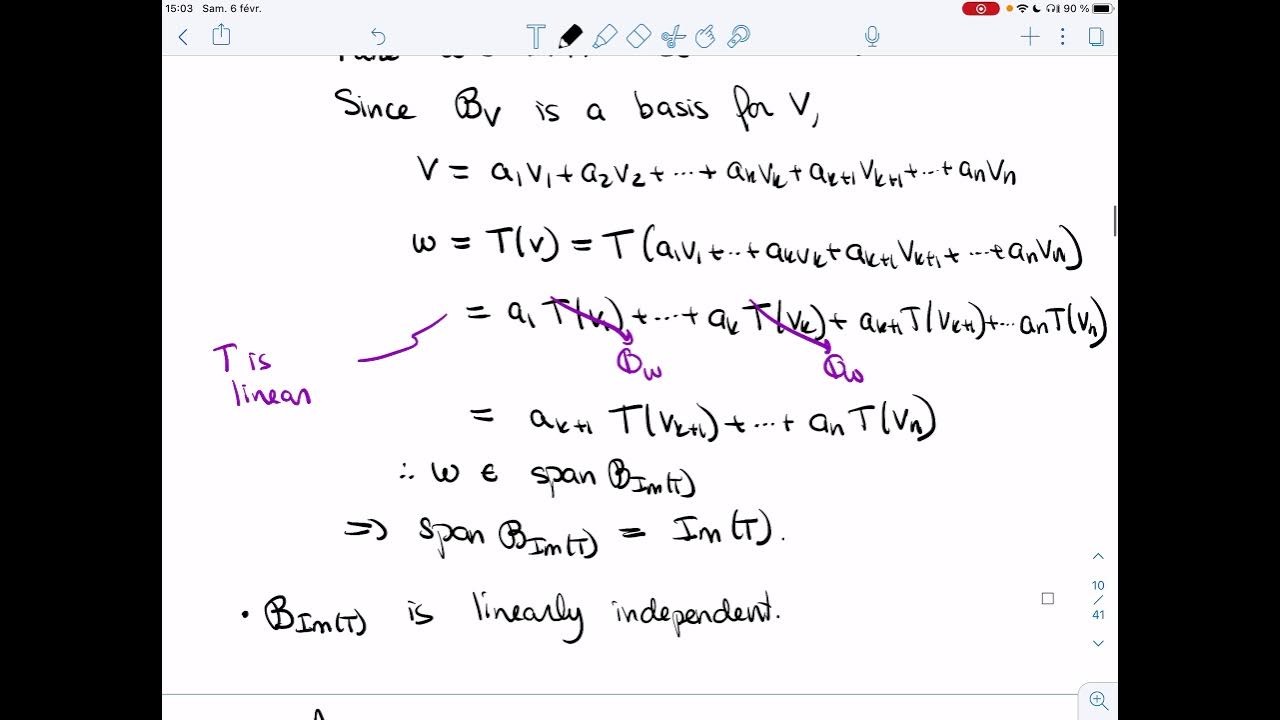 15:03 Sam. 6 févr. 90 %
Since B_V is a basis for V,
V = a₁V₁ + a₂V₂ + ... + aₖVₖ + aₖ₊₁Vₖ₊₁ + ... + aₙVₙ
w = T(v) = T(a₁V₁ + ... + aₖVₖ + aₖ₊₁Vₖ₊₁ + ... + aₙVₙ)
= a₁T(V₁) + ... + aₖT(Vₖ) + aₖ₊₁T(Vₖ₊₁) + ... aₙT(Vₙ)
T is
linear
0_w 0_w
= aₖ₊₁ T(Vₖ₊₁) + ... + aₙT(Vₙ)
∴ w ∈ span B_Im(T)
=> span B_Im(T) = Im(T).
• B_Im(T) is linearly independent.
10
/
41